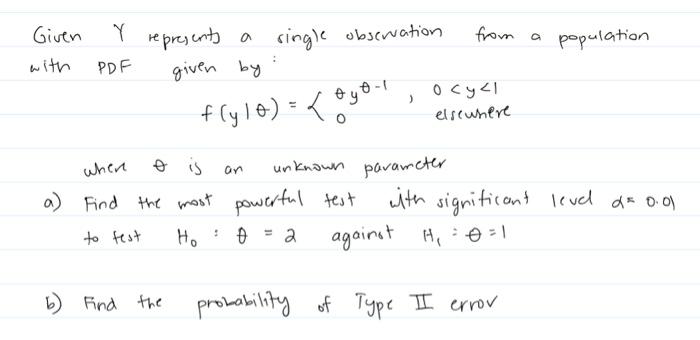 Given Y represents a single observation from a population
with PDF given by :
f(y|θ) = { θy^θ-1 , 0<y<1
0 elsewhere
where θ is an unknown parameter
a) Find the most powerful test with significant level α = 0.01
to test H₀ : θ = 2 against H₁ : θ = 1
b) Find the probability of Type II error